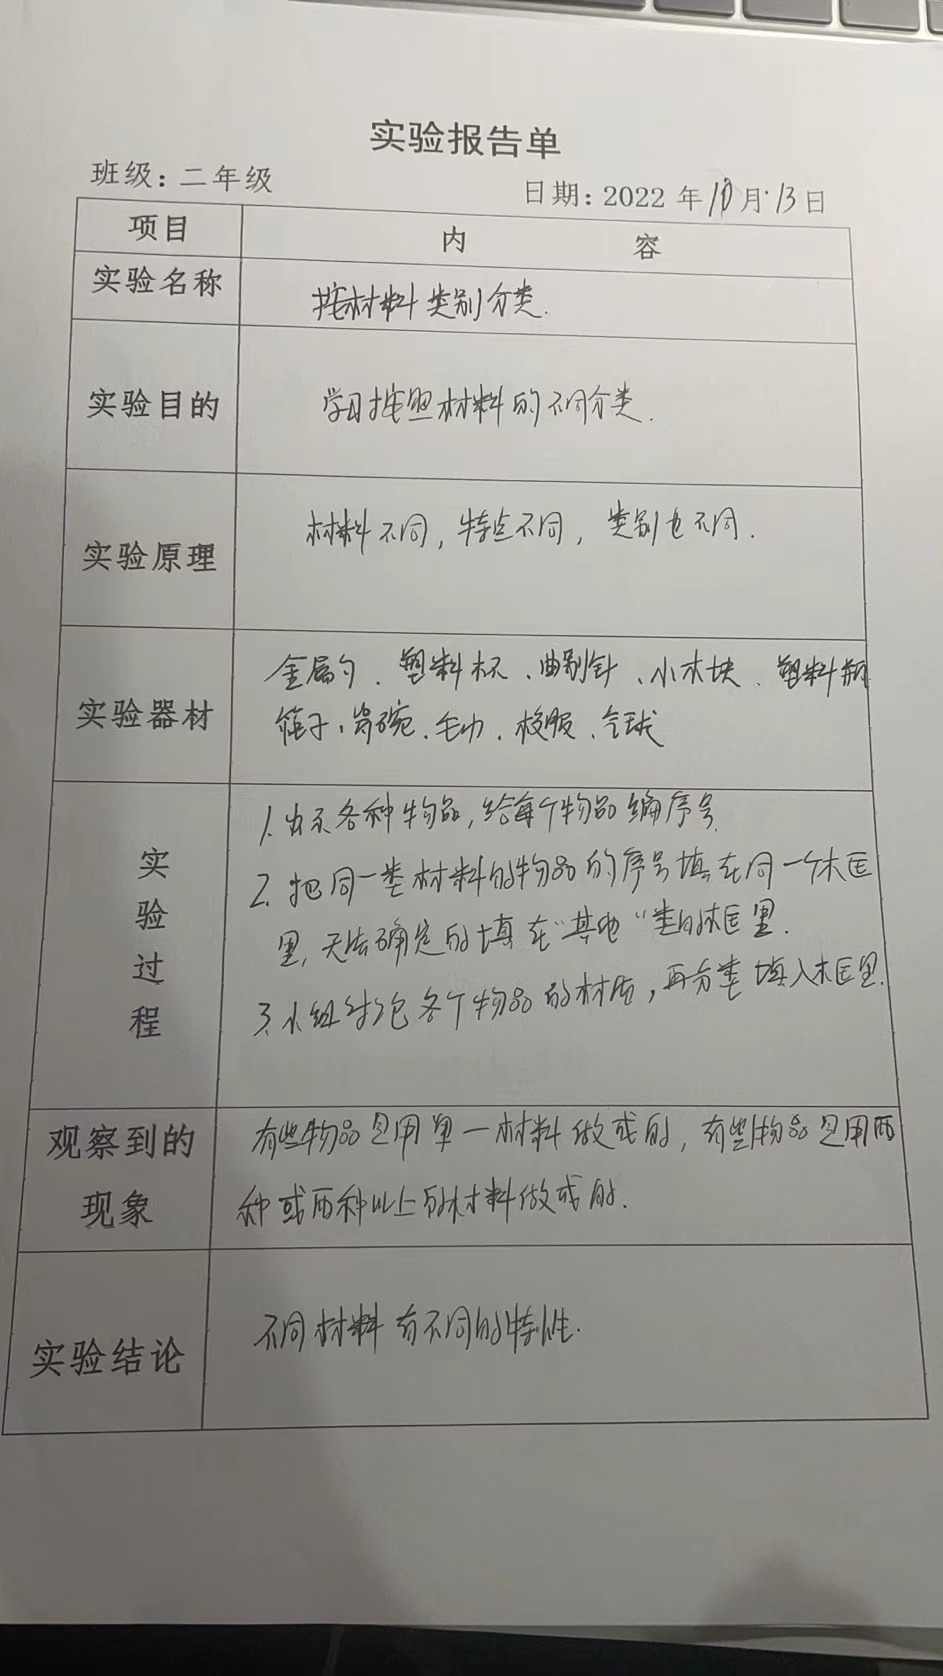 实验报告单
班级：二年级
日期：2022年10月13日
项目
内 容
实验名称
按材料类别分类.
实验目的
学习按照材料的不同分类.
实验原理
材料不同，特点不同，类别也不同.
实验器材
金属勺、塑料杯、曲别针、小木块、塑料瓶
筷子、瓷碗、毛巾、校服、气球
实验过程
1.出示各种物品，给每个物品编序号.
2.把同一类材料的物品的序号填在同一个框
里，无法确定的填在“其他”类的框里.
3.小组讨论各个物品的材质，再分类填入框里.
观察到的
现象
有些物品是用单一材料做成的，有些物品是用两
种或两种以上的材料做成的.
实验结论
不同材料有不同的特性.